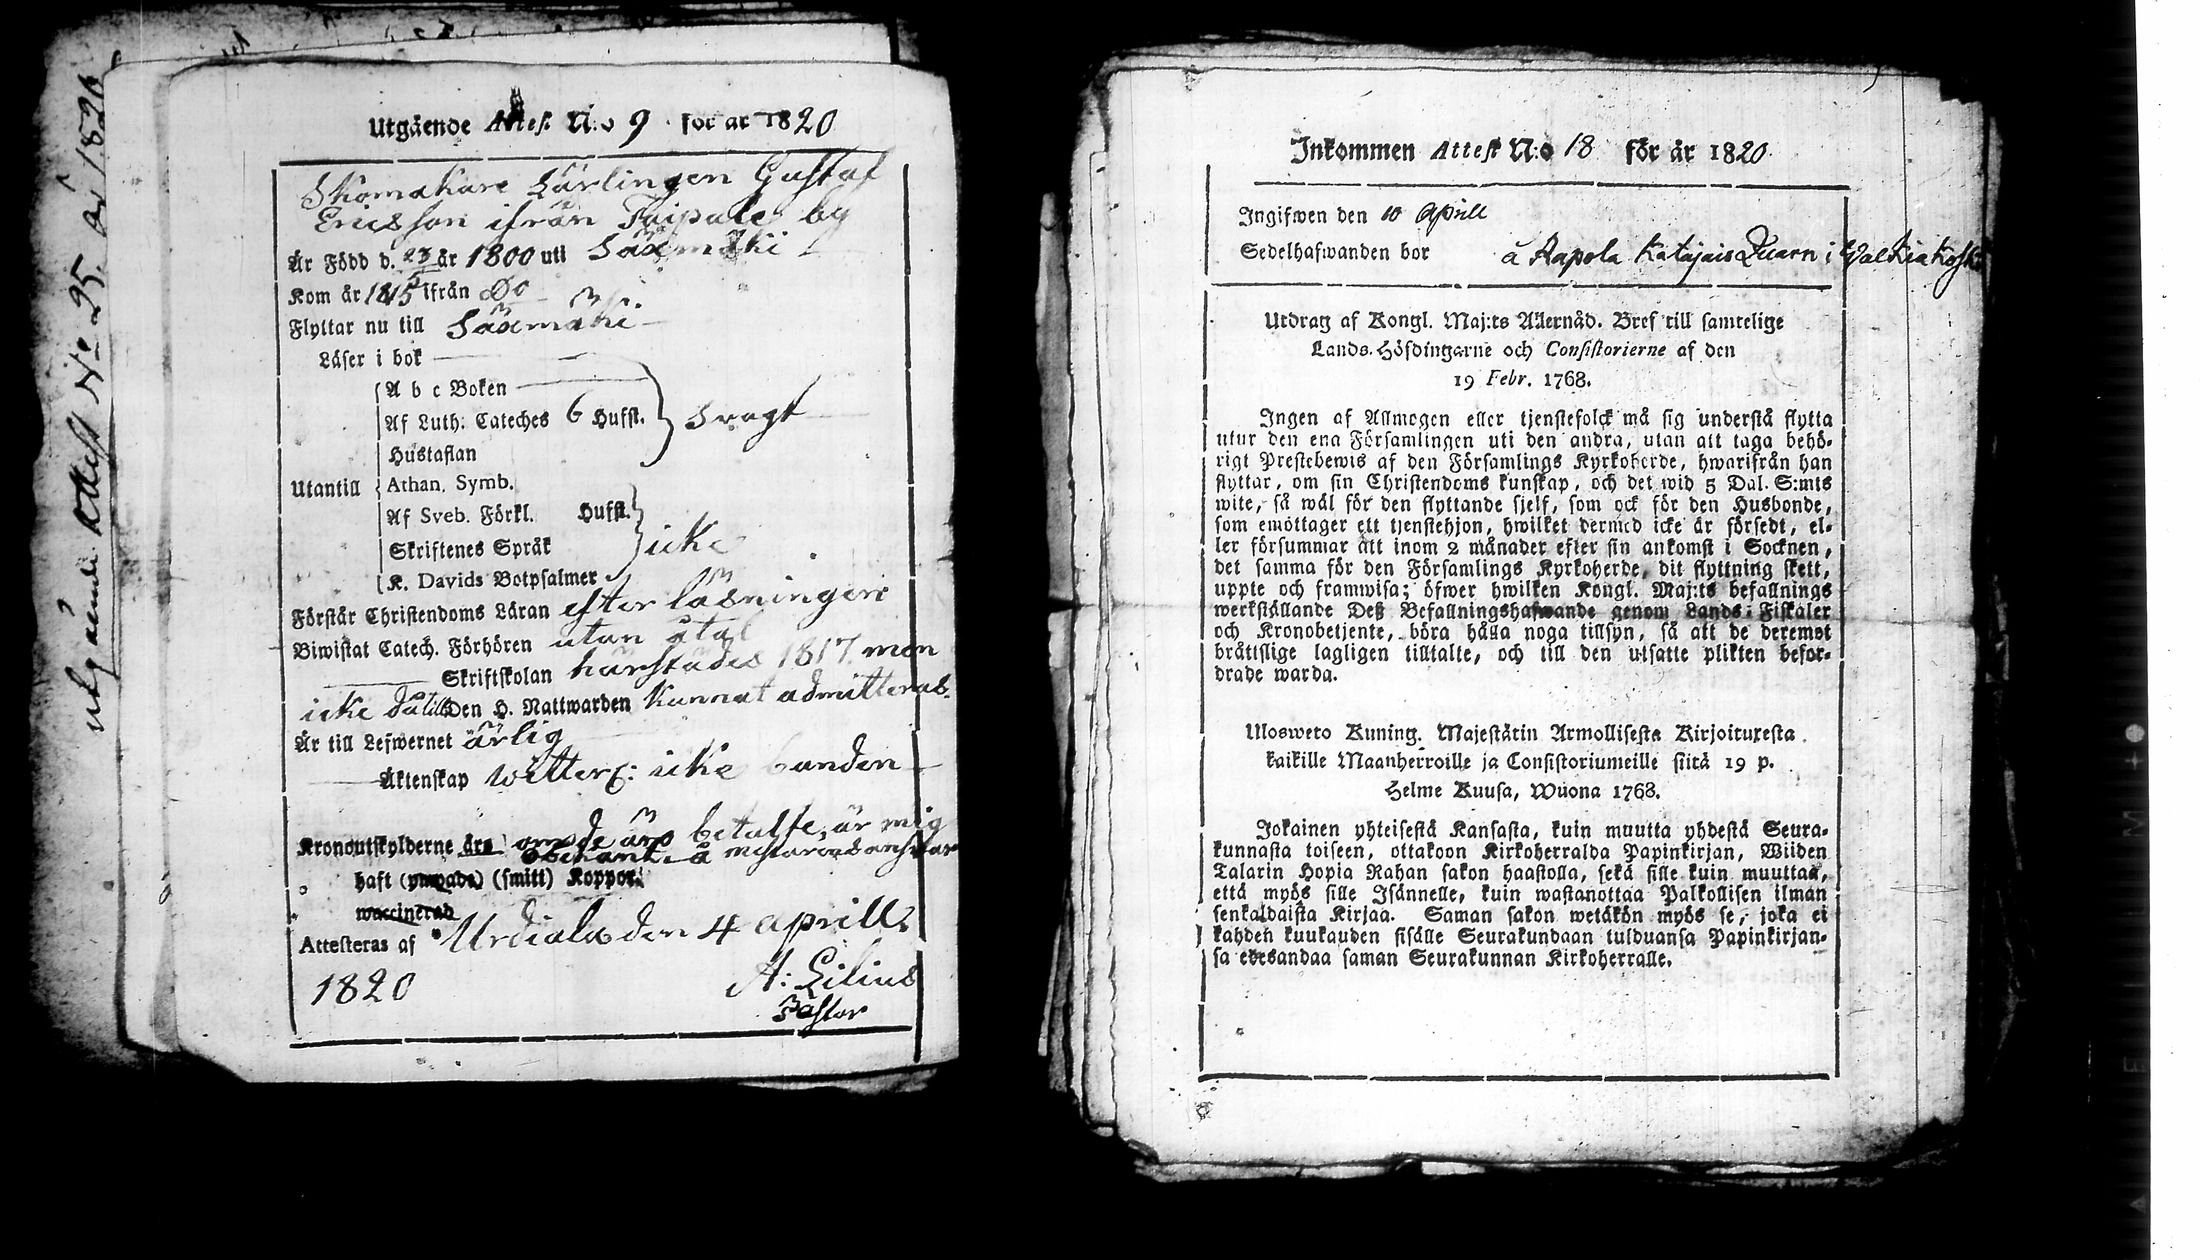 utgående Attest No 25. År 1820
Utgående Attest N:o 9 för år 1820
Skomakare Lärlingen Gustaf
Ericsson ifrån Taipale by
Är Född d. 23 år 1800 uti Säxmäki
Kom år 1815 ifrån Do
Flyttar nu till Säxmäki
Läser i bok
A b c Boken
Af Luth: Cateches 6 Hufst. svagt
Hustaflan
Utantill Athan. Symb.
Af Sveb. Förkl. Hufst.
Skriftenes Språk icke
K. Davids Botpsalmer
Förstår Christendoms Läran efter läsningen
Biwistat Catech. Förhören utan åtal
Skriftskolan härstädes 1817. men
icke då till Den H. Nattwarden kunnat admitteras.
Är till Lefwernet ärlig
Äktenskap witterl: icke bunden
Kronoutskylderne äro om de äro betalte, är mig
obekant å mästarens ansvar
haft (ympade) (smitt) Koppor.
waccinerad
Attesteras af Urdiala den 4 Aprill
1820 A: Lilius
Pastor
Inkommen Attest N:o 18 för år 1820.
Ingifwen den 10 Aprill
Sedelhafwanden bor å Rapola Katajais Quarn i Walkiakoski
Utdrag af Kongl. Maj:ts Allernåd. Bref till samtelige
Lands-Höfdingarne och Consistorierne af den
19 Febr. 1768.
Ingen af Allmogen eller tjenstefolck må sig understå flytta
utur den ena Församlingen uti den andra, utan att taga behö-
rigt Prestebewis af den Församlings Kyrkoherde, hwarifrån han
flyttar, om sin Christendoms kunskap, och det wid 5 Dal. S:mts
wite, så wäl för den flyttande sjelf, som ock för den Husbonde,
som emottager ett tjenstehjon, hwilket dermed icke är försedt, el-
ler försummar att inom 2 månader efter sin ankomst i Socknen,
det samma för den Församlings Kyrkoherde, dit flyttning skett,
uppte och framwisa; öfwer hwilken Kongl. Maj:ts befallnings
werkställande Deß Befallningshafwande genom Lands-Fiskaler
och Kronobetjente, böra hålla noga tillsyn, så att de deremot
bråttslige lagligen tilltalte, och till den utsatte plikten befor-
drade warda.
Ulosweto Kuning. Majestätin Armollisesta Kirjoituxesta
kaikille Maanherroille ja Consistoriumeille siitä 19 p.
Helme Kuusa, Wuona 1768.
Jokainen yhteisestä Kansasta, kuin muutta yhdestä Seura-
kunnasta toiseen, ottakoon Kirkoherralda Papinkirjan, Wiiden
Talarin Hopia Rahan sakon haastolla, sekä sille kuin muuttaa,
että myös sille Isännelle, kuin wastanottaa Palkollisen ilman
senkaldaista Kirjaa. Saman sakon wetäkön myös se, joka ei
kahden kuukauden sisälle Seurakundaan tulduansa Papinkirjan-
sa edesandaa saman Seurakunnan Kirkoherralle.